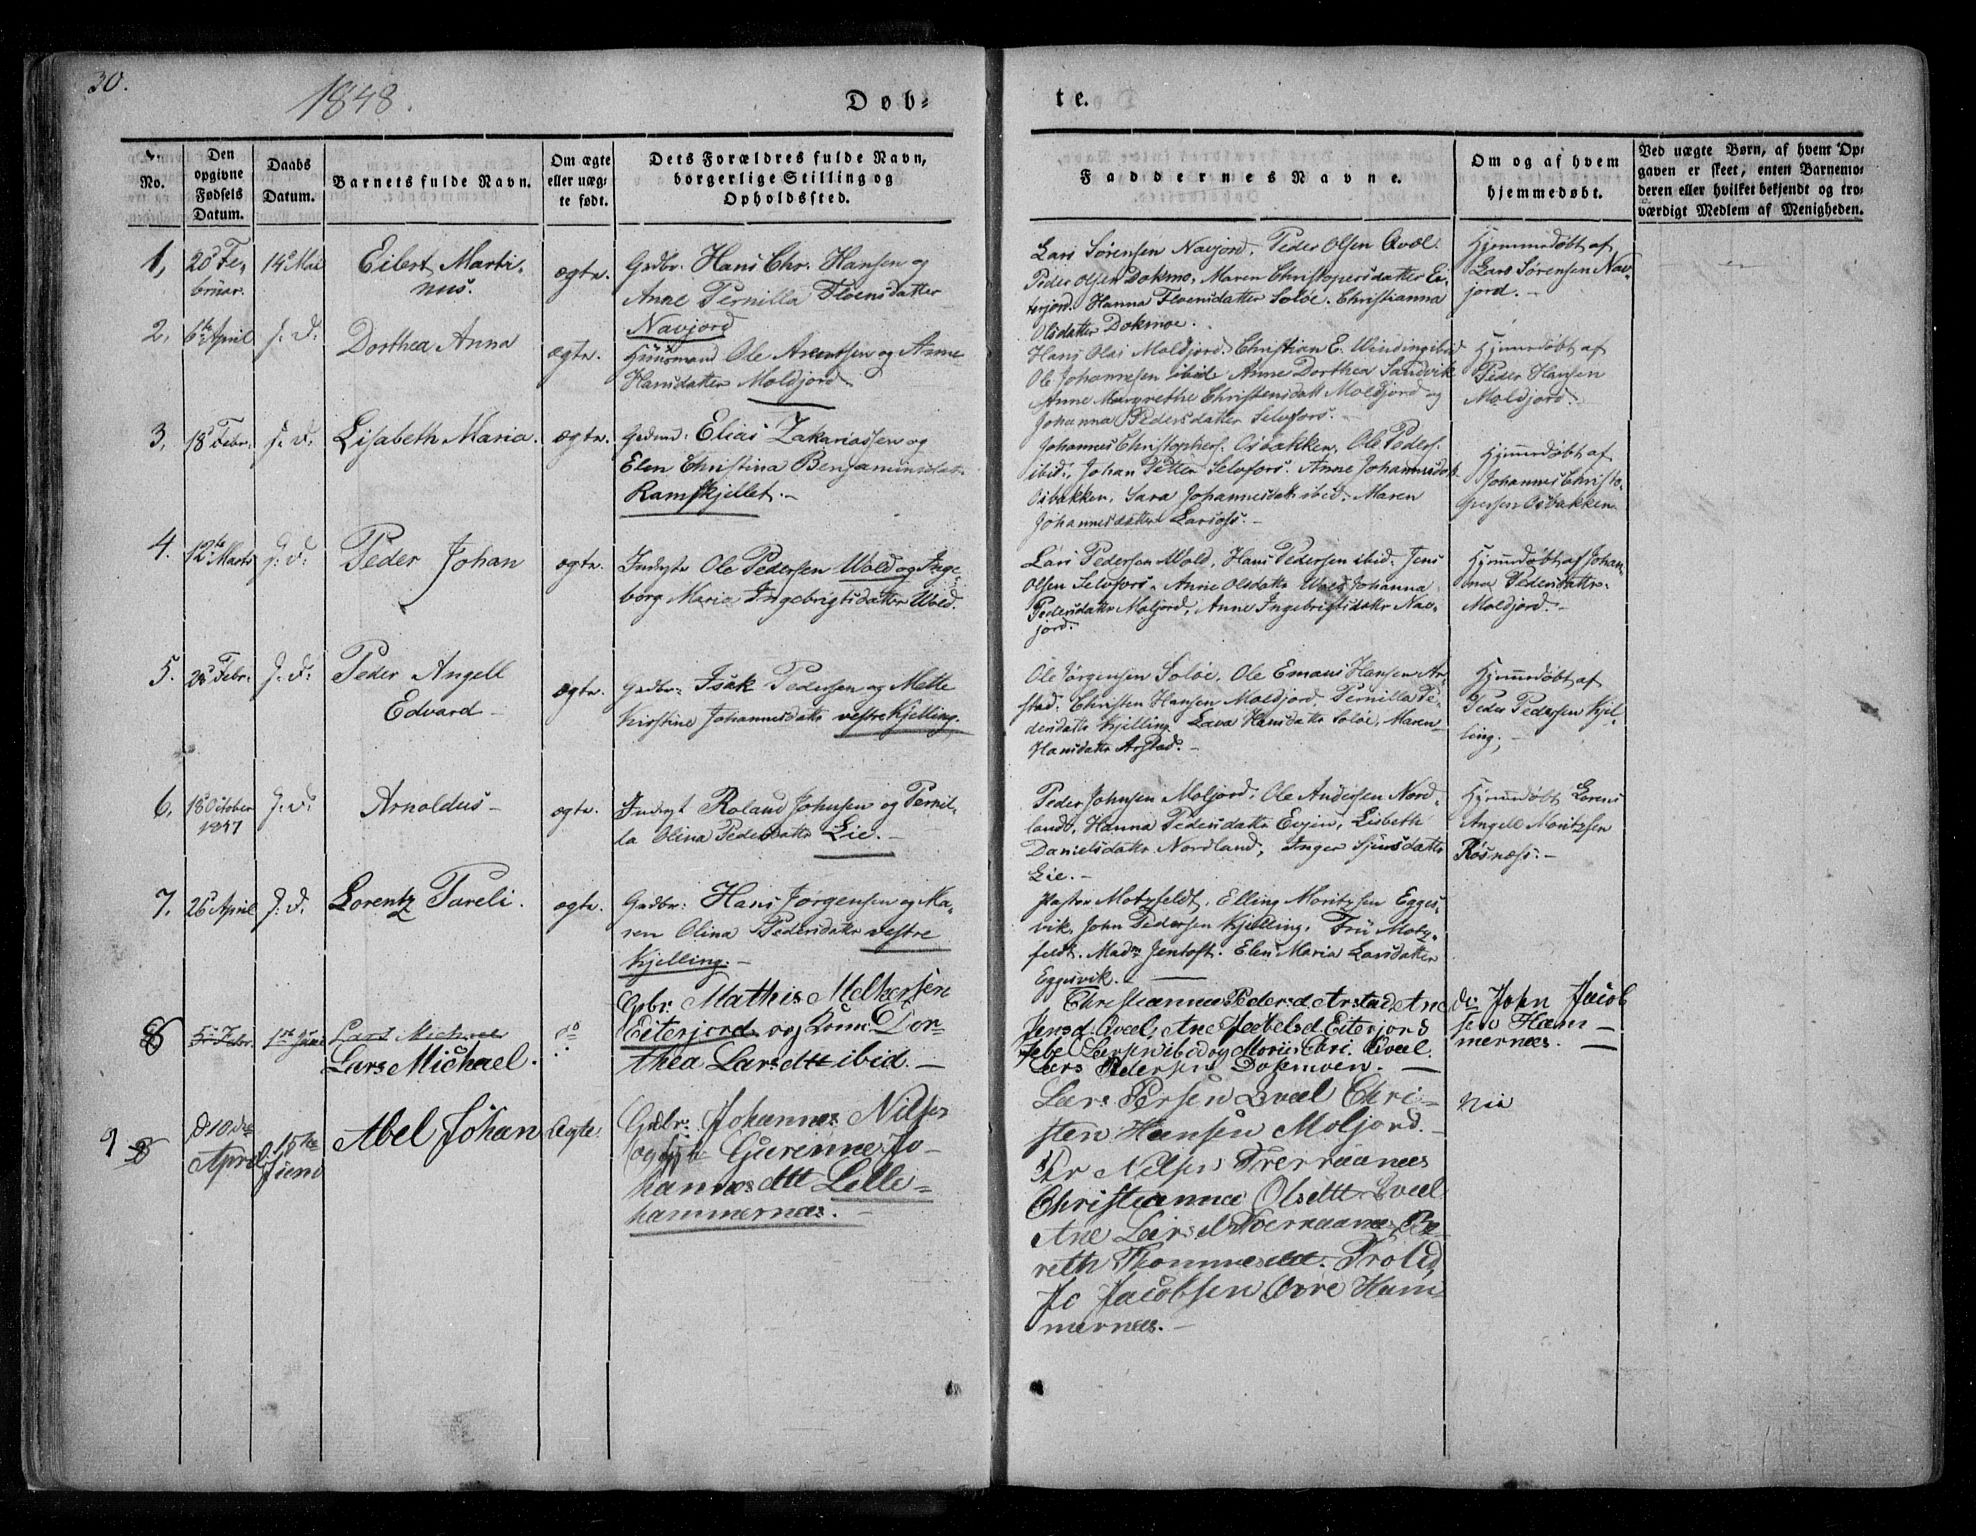 30.
1848.
Døb-
te.
No.
Den opgivne Fødsels Datum.
Daabs Datum.
Barnets fulde Navn.
Om ægte eller uægte født.
Dets Forældres fulde Navn, borgerlige Stilling og Opholdssted.
Faddernes Navne.
Om og af hvem hjemmedøbt.
Ved uægte Børn, af hvem Opgaven er skeet, enten Barnemoderen eller hvilket bekjendt og troværdigt Medlem af Menigheden.
1,
20 Fe-
bruar.
14de Mai
Eilert Marti-
nus.
ægte.
Grdbr. Hans Chr. Hansen og
Anne Pernilla Floensdatter
Navjord
Lars Sørensen Navjord. Peder Olsen Qvæl.
Peder Olsen Dokmo, Maren Christopersdatter Ei-
terjord. Hanna Floensdatter Soløe. Christianna
Olsdatter Dokmoe.
Hjemmedøbt af
Lars Sørensen Nav-
jord.
2.
6te April
s. d.
Dorthea Anna
ægte.
Huusmand Ole Arentsen og Anne
Hansdatter Moldjord
Hans Olai Moldjord. Christian E. Winding ibid
Ole Johannesen ibid. Anne Dorthea Sandvik
Anne Margrethe Christensdatt Moldjord og
Johanna Pedersdatter Selvfors.
Hjemmedøbt af
Peder Hansen
Moldjord.
3.
18 Febr.
s. d.
Lisabeth Maria.
ægte.
Elias Zakariassen og
Elen Christina Benjaminsdatt.
Ramskjellet.
Johannes Christophers. Osbakken, Ole Peders.
ibid., Johan Petter Selvfors. Anne Johannesdatt
Osbakken, Sara Johannesdatt ibid. Maren
Johannesdatter Larsos.
Hjemmedøbt af
Johannes Christo-
phersen Osbakken
4.
12te Marts
s. d.
Peder Johan
ægte.
Inderste Ole Pedersen Wold og Inge-
borg Marie Ingebrigtsdatter Wold.
Lars Pedersen Wold, Hans Pedersen ibid. Jens
Olsen Selvfors. Anne Olsdattr Wold, Johanna
Pedersdattr Moljord, Anne Ingebrigtsdattr Nav-
jord.
Hjemmedøbt af Johan-
na Pedersdatter
Moldjord.
5.
Febr.
s. d.
Peder Angell
Edvard
ægte.
Grdbr. Isak Pedersen og Mette
Kirstine Johannesdattr vestre Kjelling.
Ole Jørgensen Soløe, Ole Emaus Hansen Ar-
stad. Christen Hansen Moldjord, Pernilla Pe-
dersdattr Kjelling. Lava Hansdattr Soløe, Maren
Hansdattr Arstad.
Hjemmedøbt af
Peder Pedersen Kjel-
ling.
6.
18 October
1847
s. d.
Arnoldus
ægte.
Inderst Roland Johnsen og Pernil-
la Olina Pedersdattr Lie.
Peder Johnsen Moljord. Ole Andersen Nord-
land. Hanna Pedersdattr Evjen, Lisbeth
Danielsdattr Nordland, Inger Sjursdattr
Lie.
Hjemmedøbt Lorens
Angell Moritzsen
Røsnæss.
7.
26 April
s. d.
Lorentz Pareli.
ægte.
Grdbr: Hans Jørgensen og Ma-
ren Olina Pedersdattr vestre
Kjelling.
Pastor Motzfeldt, Elling Moritzsen Egges-
vik, John Pedersen Kjelling. Fru Motz-
feldt. Madm Jentoft. Elen Maria Larsdatter
Eggesvik.
8
5 Febr.
1st Juni
Lars Michael
Lars Michael.
do
Gpbr. Mathis Melkersen
Eiterjord og Konn: Dor-
thea Larsdtt ibid.
Christianna Pedersd. Arstad Ane
Jensd. Qvæl, Ane Jacbelsd. Eiterjord
Larsen ibid og Moriis Chri. Qvæl.
Lars Pedersen Dokmoen.
do John Jacob
sen Ham-
mernæs.
9 8
d 10de
April
15de
Juni
Abel Johan
Ægte.
Gdbr. Johannes Nilsen
Gurenne Jo-
hannesdtt Lille-
hammernæs.
Lars Persen Qvæl Chri-
sten Hansen Moljord.
Pr Nilsen Trerraanæs
Christianna Olsdtt Qvæl
Ane Larsd. Be-
reth Thommesdtt. Trolid,
Jo Jacobsen Øvre Ham-
mernæs.
Nei